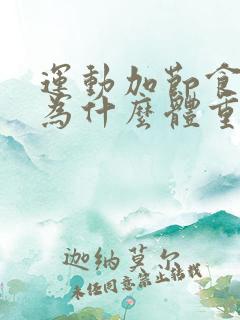 運動加節食
為什麼體重
迦納莫尔
未经同意禁止转载